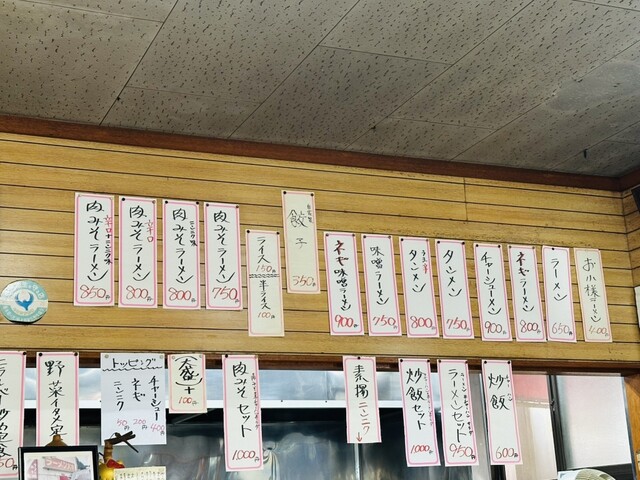 お子様ラーメン 400円
ラーメン 650円
ネギラーメン 800円
チャーシューメン 900円
タンメン 750円
タンメン 800円
味噌ラーメン 750円
ネギ味噌ラーメン 900円
餃子 350
ライス 150円
半ライス 100円
肉みそラーメン 750円
ニンニク味
肉みそラーメン 800円
辛口
肉みそラーメン 800円
辛口ニンニク味
肉みそラーメン 850円
炒飯 600円
ラーメンセット 950円
炒飯セット 1000円
素揚ニンニク
肉みそセット 1,000円
大盛 + 100円
トッピング
チャーシュー 400円
ネギ 200円
ニンニク 50円
野菜イタメ定